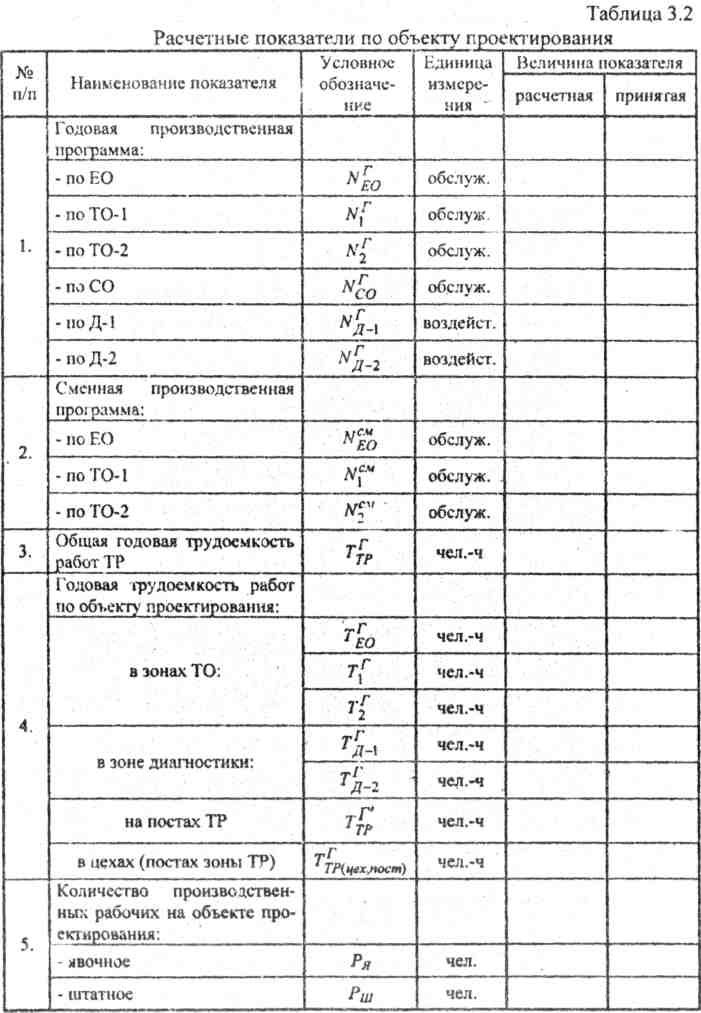 Таблица 3.2
Расчетные показатели по объекту проектирования
№ п/п | Наименование показателя | Условное обозначе-ние | Единица измере-ния | Величина показателя
расчетная | принятая
1.
Годовая производственная
программа:
- по ЕО | N^Г_ЕО | обслуж.
- по ТО-1 | N^Г_1 | обслуж.
- по ТО-2 | N^Г_2 | обслуж.
- по СО | N^Г_СО | обслуж.
- по Д-1 | N^Г_Д–1 | воздейст.
- по Д-2 | N^Г_Д–2 | воздейст.
2.
Сменная производственная
программа:
- по ЕО | N^см_ЕО | обслуж.
- по ТО-1 | N^см_1 | обслуж.
- по ТО-2 | N^см_2 | обслуж.
3.
Общая годовая трудоемкость
работ ТР | T^Г_ТР | чел.-ч
4.
Годовая трудоемкость работ
по объекту проектирования:
в зонах ТО: | T^Г_ЕО | чел.-ч
T^Г_1 | чел.-ч
T^Г_2 | чел.-ч
в зоне диагностики: | T^Г_Д–1 | чел.-ч
T^Г_Д–2 | чел.-ч
на постах ТР | T^Г'_ТР | чел.-ч
в цехах (постах зоны ТР) | T^Г_ТР(цех,пост) | чел.-ч
5.
Количество производствен-
ных рабочих на объекте про-
ектирования:
- явочное | Р_Я | чел.
- штатное | Р_Ш | чел.